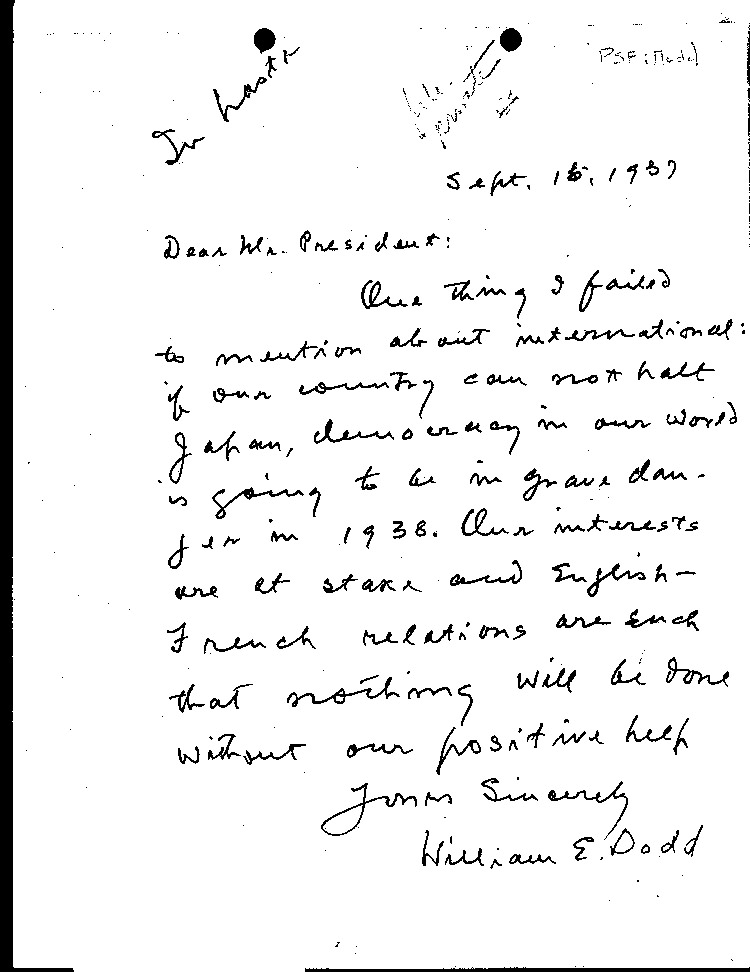 In haste
file
private
PSF: Dodd
Sept. 15, 1937
Dear Mr. President:
One thing I failed
to mention about international:
if our country can not halt
Japan, democracy in our world
is going to be in grave dan-
ger in 1938. Our interests
are at stake and English-
French relations are such
that nothing will be done
without our positive help
Yours Sincerely
William E. Dodd